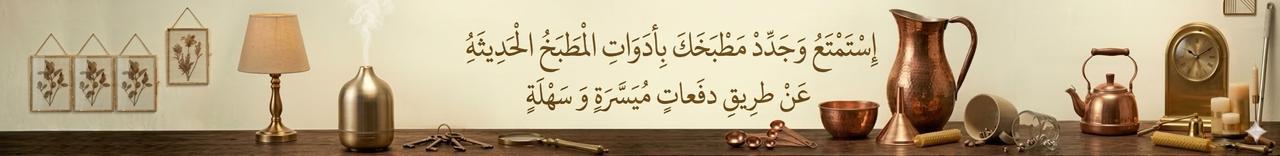 إِسْتَمْتَعُ وَجَدِّدْ مَطْبَخَكَ بِأَدَوَاتِ الْمَطَبَخُ الْحَدِيثَةِ
عَنْ طَرِيقِ دفَعاتٍ مُيَسَّرَةٍ وَ سَهْلَةٍ